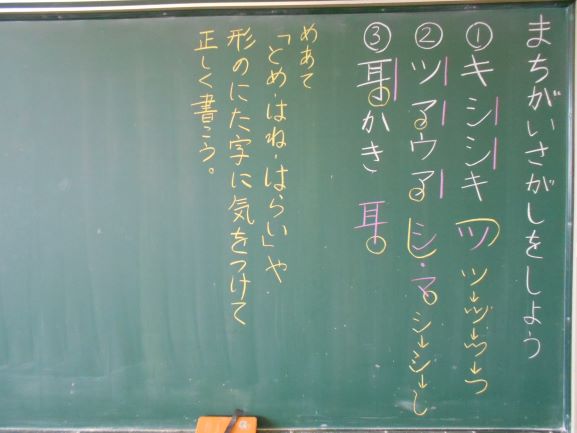 まちがいさがしをしよう
①キシシキ ツ ツ→ツ→つ→つ
②ツアウア シ・マ シ→シ→し
③耳かき 耳
めあて
「とめ・はね・はらい」や
形のにた字に気をつけて
正しく書こう。